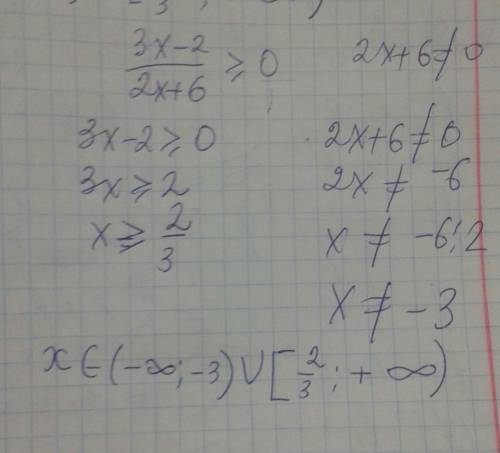 (3x-2)/(2x+6) ≥ 0    2x+6≠0
3x-2≥0    2x+6≠0
3x≥2    2x ≠ -6
x≥ 2/3    x ≠ -6:2
x ≠ -3
x∈(-∞;-3)∪[2/3;+∞)